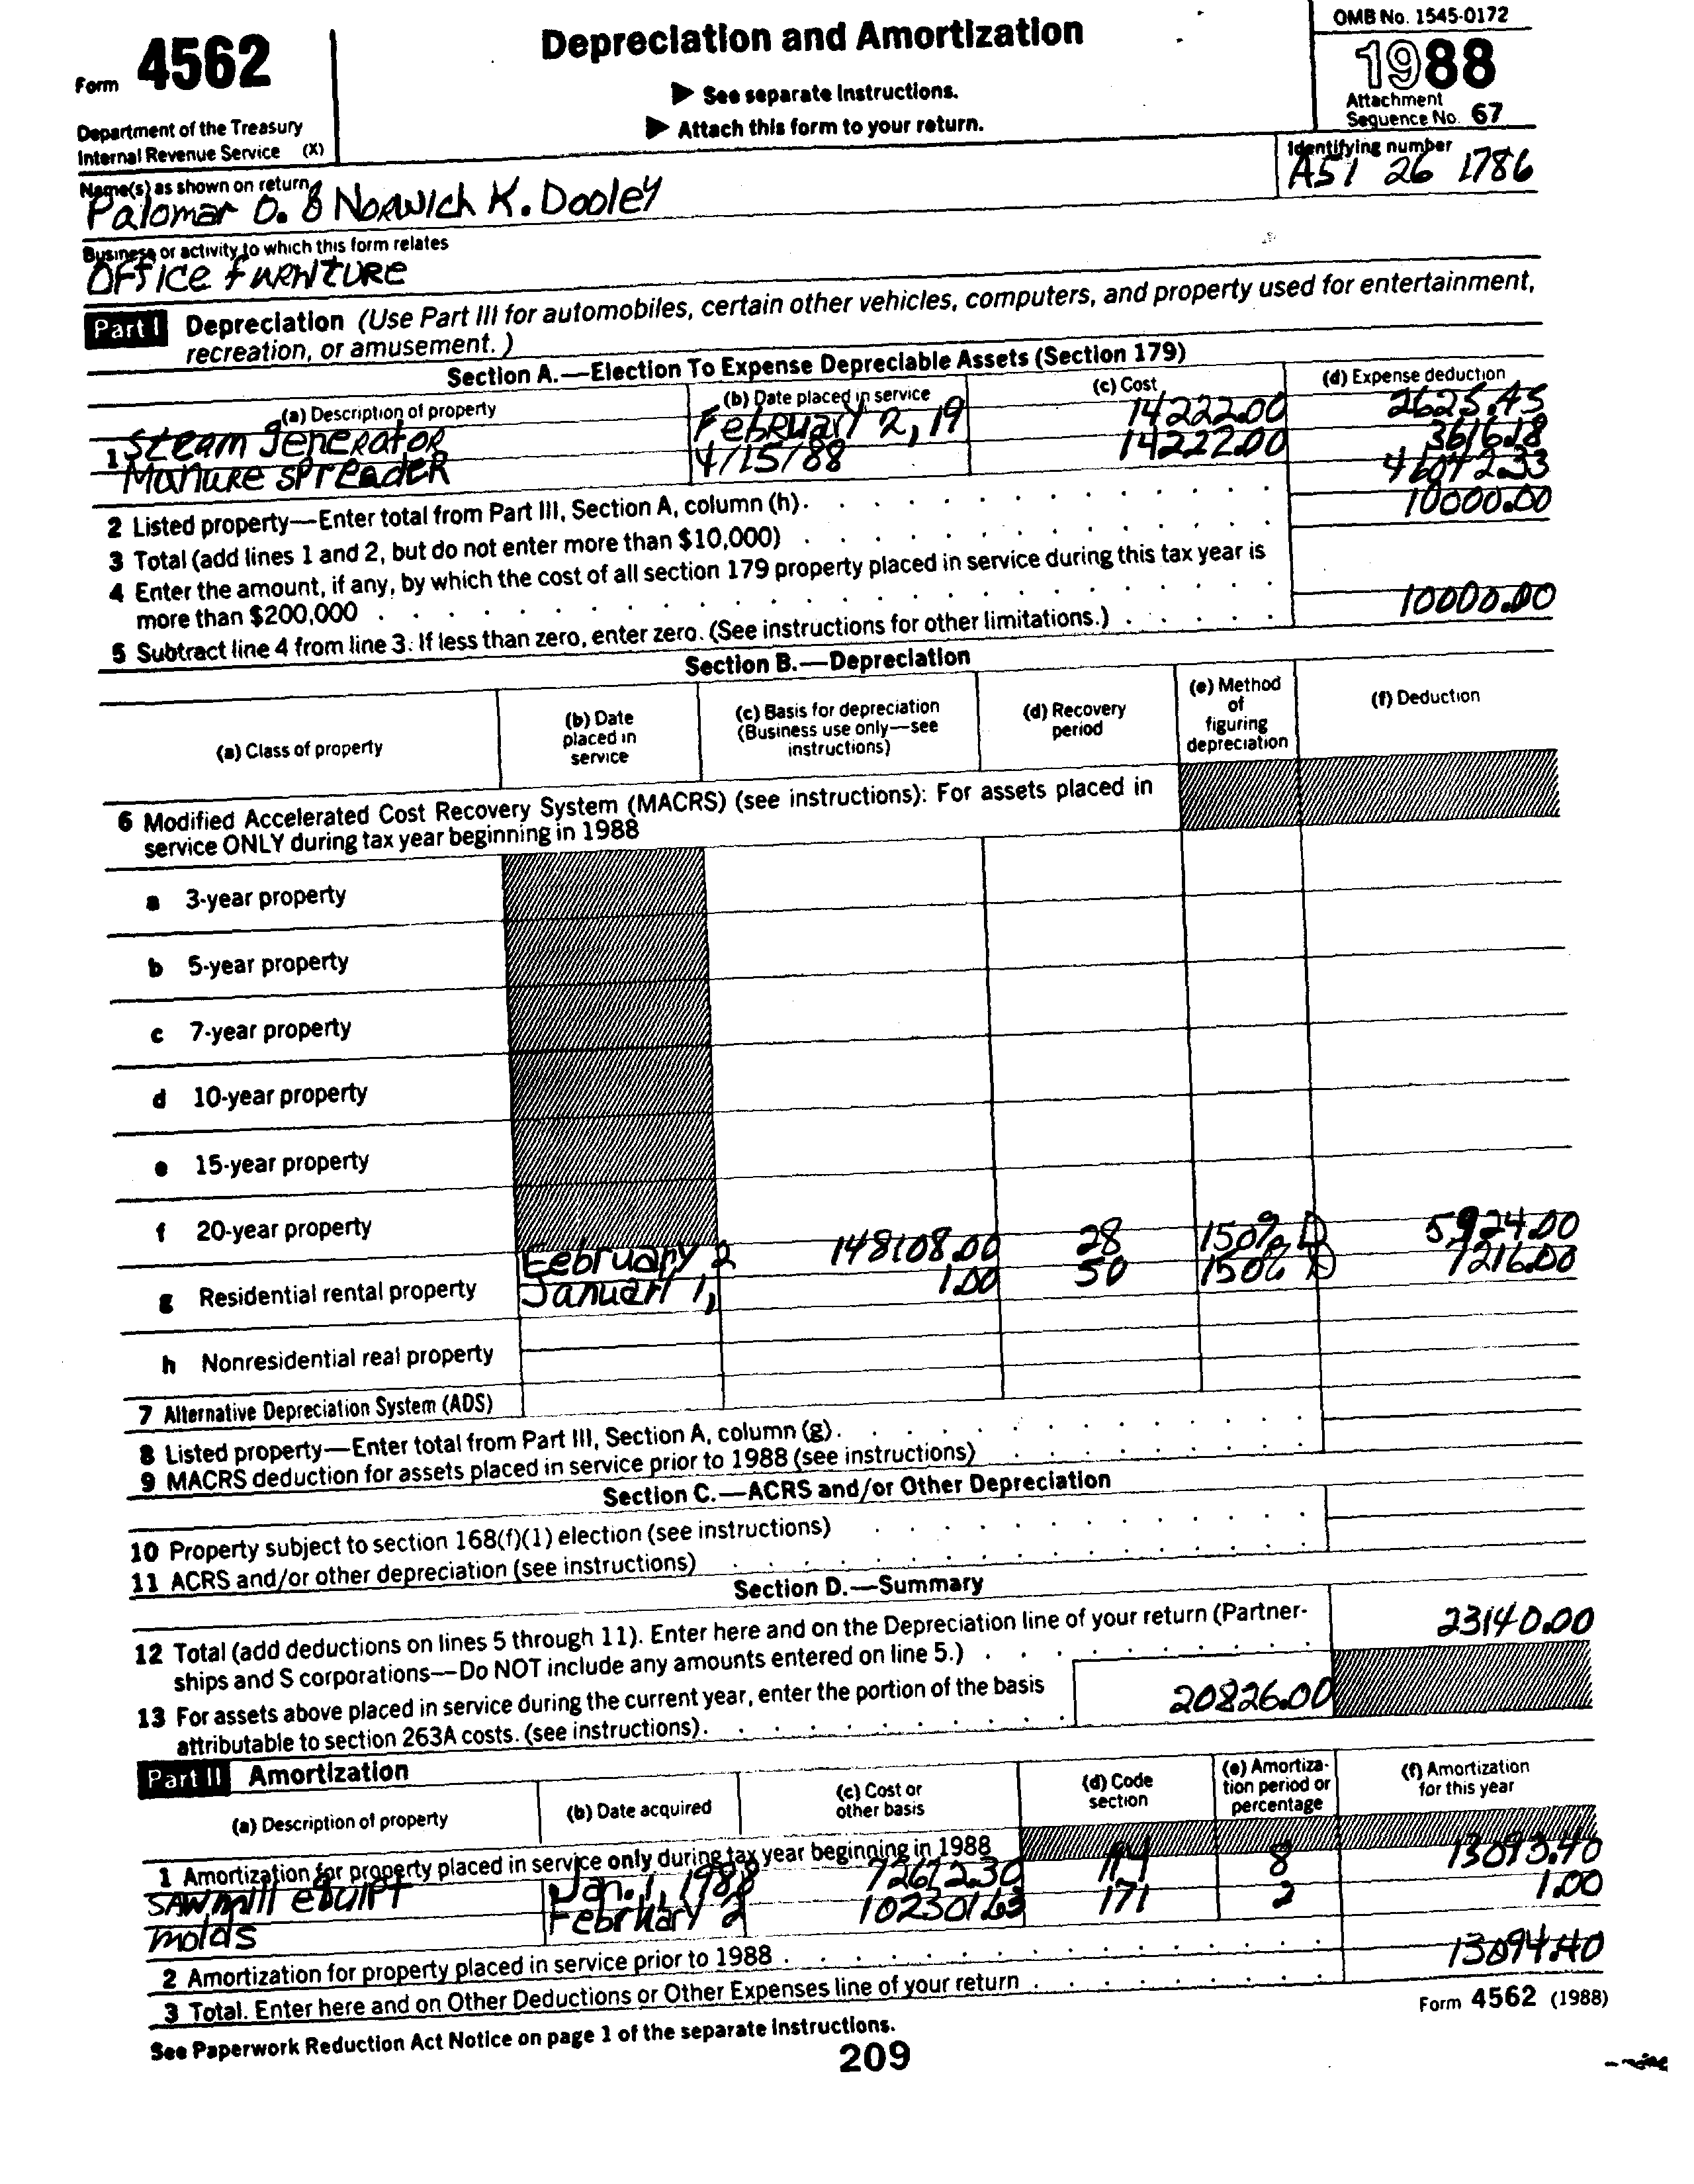 Form 4562
Department of the Treasury
Internal Revenue Service (X)
Depreciation and Amortization
▶ See separate Instructions.
▶ Attach this form to your return.
OMB No. 1545-0172
1988
Attachment
Sequence No. 67
Name(s) as shown on return
Palomar O. & Norwich K. Dooley
Identifying number
A51 26 1786
Business or activity to which this form relates
Office furniture
Part I Depreciation (Use Part III for automobiles, certain other vehicles, computers, and property used for entertainment,
recreation, or amusement.)
Section A.—Election To Expense Depreciable Assets (Section 179)
(a) Description of property (b) Date placed in service (c) Cost (d) Expense deduction
1 Steam generator February 2, 19 14222.00 2625.45
Manure spreader 4/15/88 14222.00 3616.18
2 Listed property—Enter total from Part III, Section A, column (h). 46042.33
3 Total (add lines 1 and 2, but do not enter more than $10,000) 10000.00
4 Enter the amount, if any, by which the cost of all section 179 property placed in service during this tax year is
more than $200,000
5 Subtract line 4 from line 3. If less than zero, enter zero. (See instructions for other limitations.) 10000.00
Section B.—Depreciation
(a) Class of property (b) Date placed in service (c) Basis for depreciation (Business use only—see instructions) (d) Recovery period (e) Method of figuring depreciation (f) Deduction
6 Modified Accelerated Cost Recovery System (MACRS) (see instructions): For assets placed in
service ONLY during tax year beginning in 1988
a 3-year property
b 5-year property
c 7-year property
d 10-year property
e 15-year property
f 20-year property
February 2 148108.00 28 150% D 5924.00
g Residential rental property January 1, 1.00 50 150% D 7216.00
h Nonresidential real property
7 Alternative Depreciation System (ADS)
8 Listed property—Enter total from Part III, Section A, column (g).
9 MACRS deduction for assets placed in service prior to 1988 (see instructions)
Section C.—ACRS and/or Other Depreciation
10 Property subject to section 168(f)(1) election (see instructions)
11 ACRS and/or other depreciation (see instructions)
Section D.—Summary
12 Total (add deductions on lines 5 through 11). Enter here and on the Depreciation line of your return (Partner-
ships and S corporations—Do NOT include any amounts entered on line 5.) 23140.00
13 For assets above placed in service during the current year, enter the portion of the basis
attributable to section 263A costs. (see instructions). 20826.00
Part II Amortization
(a) Description of property (b) Date acquired (c) Cost or other basis (d) Code section (e) Amortization period or percentage (f) Amortization for this year
1 Amortization for property placed in service only during tax year beginning in 1988
Sawmill equipt Jan. 1, 1988 72612.30 194 8 13093.40
molds February 2 102301.63 171 2 1.00
2 Amortization for property placed in service prior to 1988
3 Total. Enter here and on Other Deductions or Other Expenses line of your return 13094.40
See Paperwork Reduction Act Notice on page 1 of the separate Instructions.
Form 4562 (1988)
209